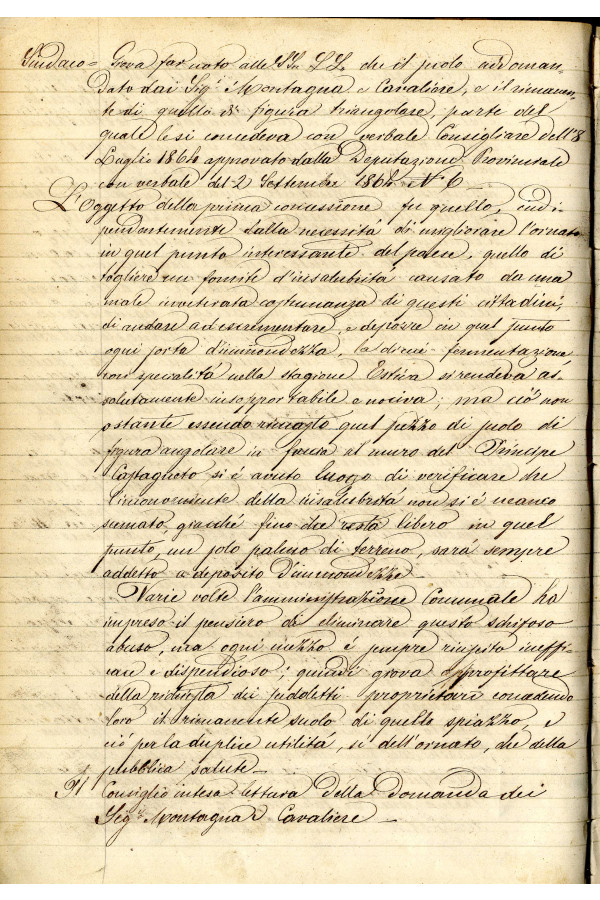 Sindaco = Giova far noto alle SS. LL. che il suolo addoman-
dato dai Sigri Montagna e Cavaliere, e il rimanen-
te di quello di figura triangolare, parte del
quale le si concedeva con verbale Consigliare dell'8
Luglio 1864 approvato dalla Deputazione Provinciale
con verbale del 2 Settember 1864 N. 6 —
L'oggetto della prima concessione fu quello, indi-
pendentemente dalla necessitá di migliorare l'ornato
in quel punto interessante del paese, quello di
togliere un fomite d'insalubritá causato da una
male inveterata costumanza di questi cittadini,
di andare ad escrementare, e deporre in quel punto
ogni sorta d'immondezza, la di cui fermentazione
con specialitá nella stagione Estiva si rendeva as-
solutamente insopportabile e nociva; ma ció non
ostante essendo rimasto quel pezzo di suolo di
figura angolare in faccia al muro del Principe
Castagneto si é avuto luogo di verificare che
l'inconveniente della insalubritá non si é neanco
scemato, giacché fino che resta libero in quel
punto, un solo palmo di terreno, sará sempre
addetto a deposito d'immondezze
Varie volte l'amministrazione Comunale ha
impreso il pensiero di eliminare questo schifoso
abuso, ma ogni mezzo é sempre riuscito ineffi-
cace e dispendioso; quindi giova approfittare
della richiesta dei suddetti proprietari concedendo
loro il rimanente suolo di quello spiazzo, e
ció per la duplice utilitá, si dell'ornato, che della
pubblica salute —
Il Consiglio intesa lettura della domanda dei
Sigri Montagna e Cavaliere —